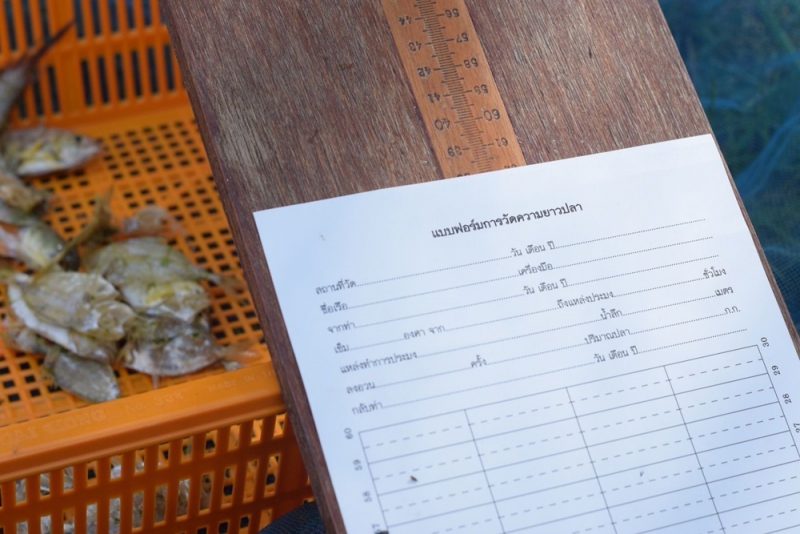 44 56
43 57
42 58
41 59
40 60
39
แบบฟอร์มการวัดความยาวปลา
สถานที่วัด................วัน เดือน ปี................
ชื่อเรือ................เครื่องมือ................
จากท่า................วัน เดือน ปี................
เข็ม................องศา จาก................ถึงแหล่งประมง................ชั่วโมง
แหล่งทำการประมง................น้ำลึก................เมตร
ลงอวน................ครั้ง................ปริมาณปลา................ก.ก.
กลับท่า................วัน เดือน ปี................
60 30
59 29
58 28
57 27